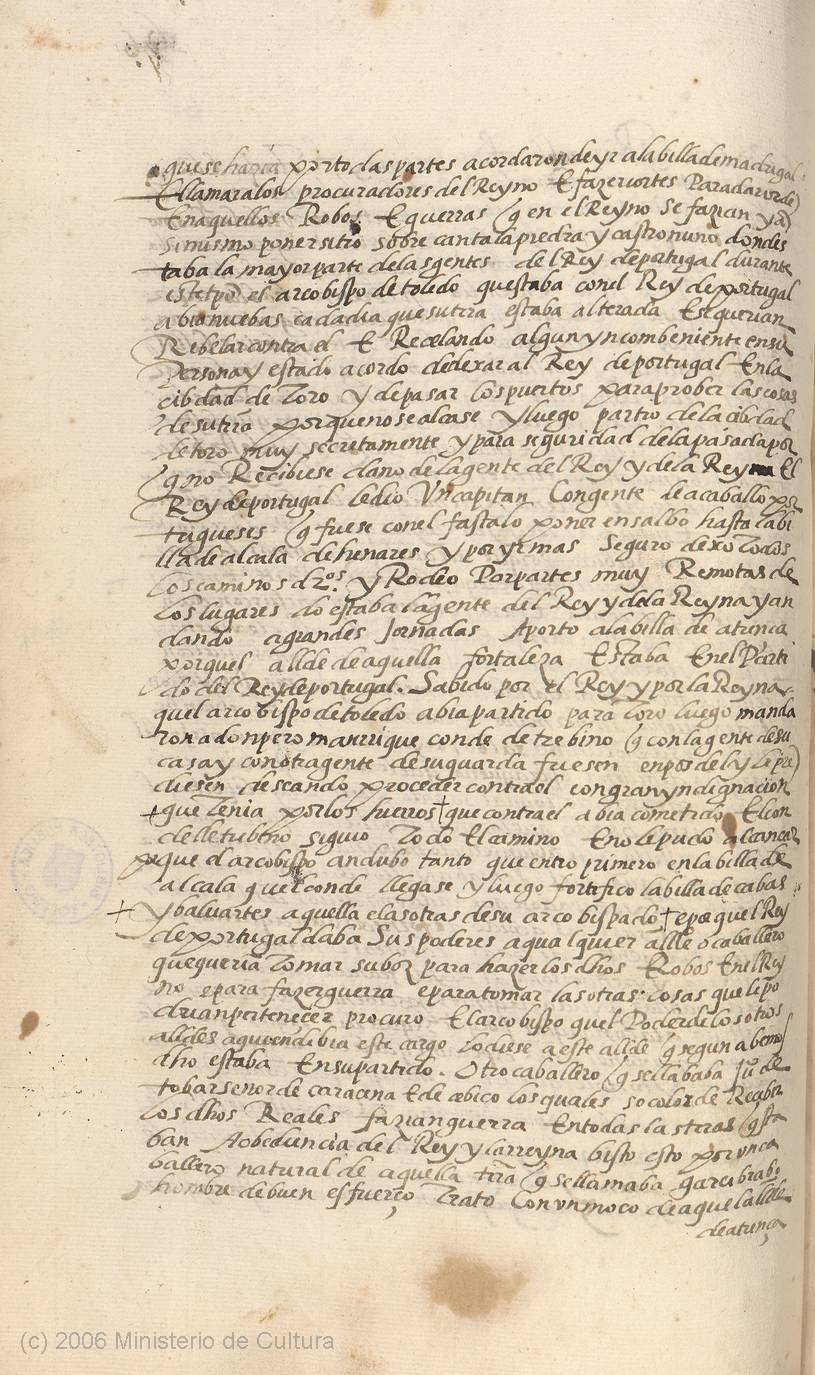 que se hazia por todas partes acordaron de yr a la billa de madrigal
E llamar a los procuradores del Reyno E fazer cortes Para dar orde
En aquellos Robos E guerras q en el Reyno se fazian y a
si mismo poner sitio sobre cantalapiedra y castronuno donde s
taba la mayor parte de las gentes del Rey de portugal durante
este tpo el arcobispo de toledo questaba con el Rey de portugal
abia nuebas cada dia que su tirra estaba alterada E se querian
Rebelar contra el E Recelando algun ynconbeniente en su
Persona y estado acordo de dexar al Rey de portugal En la
cibdad de Toro y de pasar los puertos para prober las cosas
de su tirra porque no se alcase y luego partio de la cibdad
de toro muy secretamente y para seguridad de la pasada por
q no Recibiese dano de la gente del Rey y de la Reyna El
Rey de portugal le dio Un capitan Con gente de a caballo por
tugueses q fuese con el fasta lo poner en salbo hasta la bi
lla de alcala de henares y por yr mas Seguro dexo Todos
los caminos d ros y Rodeo Por partes muy Remotas de
los lugares do estaba la gente del Rey y de la Reyna y an
dando a grandes Jornadas Aporto a la billa de atienca
porquel allde de aquella fortaleza Estaba En el Parti
do del Rey de portugal. Sabido por el Rey y por la Reyna
quel arcobispo de toledo abia partido para Toro luego manda
ron a don pero manrrique conde de trebino q con la gente de su
casa y con otra gente de su guarda fuesen en pos del y le pre
diesen deseando proceder contra el con gran yndignacion
+ que Tenia por los hierros + que contra el abia cometido El con
de de tribino siguio Todo El camino E no le pudo alcancar
porque el arcobispo andubo tanto que entro primero en la billa de
alcala quel conde llegase y luego fortifico la billa de cabas
+ y baluartes a quella e las otras de su arcobispado + e porquel Rey
de portugal daba Sus poderes a qualquier allde o caballero
que queria Tomar su boz para hazer los dhos Robos En el Rey
no e para fazer guerra e para tomar las otras cosas que le po
drian pertenecer procuro El arcobispo quel Poder de los otros
alldes a quien dibia este cargo lo diese a este allde q segun abemos
dho estaba En su partido. Otro caballero q se llababa Ju de
tobar senor de caracena E de cebico los quales so color de Recabar
los dhos Reales fazian guerra En todas las tiras q sta
ban A obediencia del Rey y la rreyna bisto esto por un ca
ballero natural de aquella tira q se llamaba garci brabo
hombre de buen esfuerço Trato Con un moco de aquel allde
de atienca
(c) 2006 Ministerio de Cultura